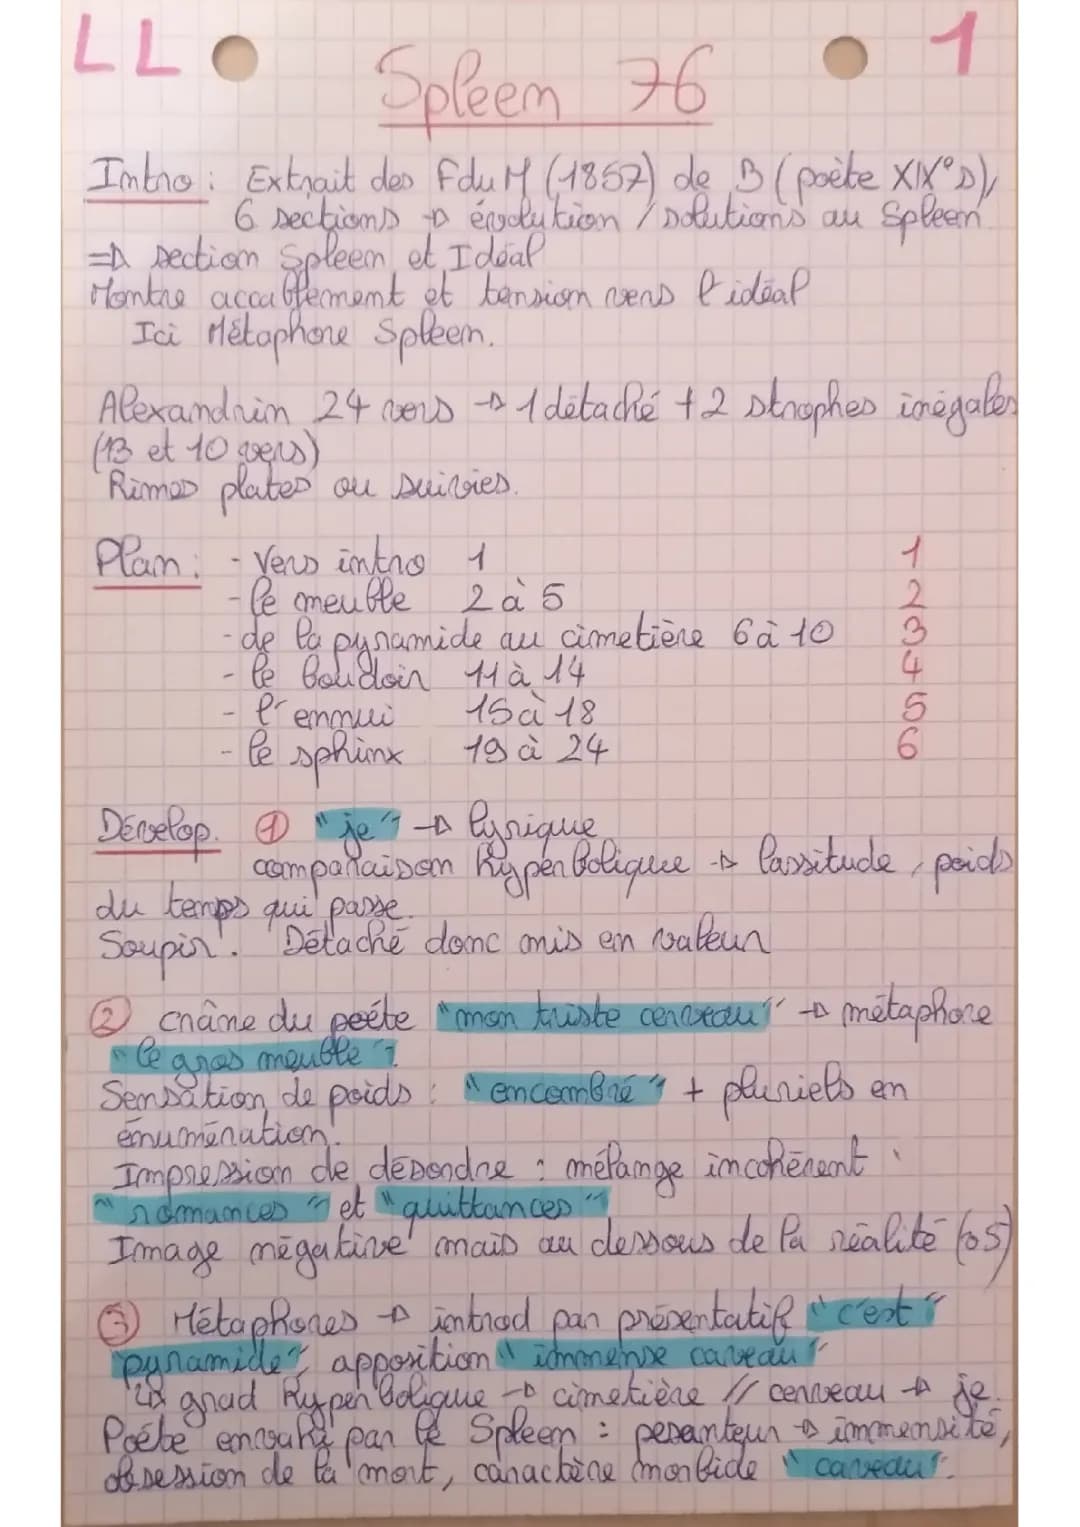 LL 1
Spleen 76
Intro : Extrait des FduM (1857) de B (poète XIX°s),
6 sections → évolution / solutions au Spleen
=> section Spleen et Idéal
Montre accablement et tension vers l'idéal
Ici Métaphore Spleen.
Alexandrin 24 vers → 1 détaché + 2 strophes inégales
(13 et 10 vers)
Rimes plates ou suivies.
Plan : - Vers intro 1 1
- le meuble 2 à 5 2
- de la pyramide au cimetière 6 à 10 3
- le boudoir 11 à 14 4
- l'ennui 15 à 18 5
- le sphinx 19 à 24 6
Dévelop. ① "je" → lyrique
comparaison hyperbolique → lassitude, poids
du temps qui passe.
Soupir. Détaché donc mis en valeur
② crâne du poète "mon triste cerveau" → métaphore
"le gros meuble".
Sensation de poids : "encombré" + pluriels en
énumération.
Impression de désordre : mélange incohérent :
"romances" et "quittances"
Image négative mais au dessous de la réalité (v5)
③ Métaphores → introd par présentatif "c'est"
"pyramide", apposition "immense caveau"
grad hyperbolique → cimetière // cerveau → je.
Poète envahi par le Spleen : pesanteur → immensité,
obsession de la mort, caractère morbide "caveau".